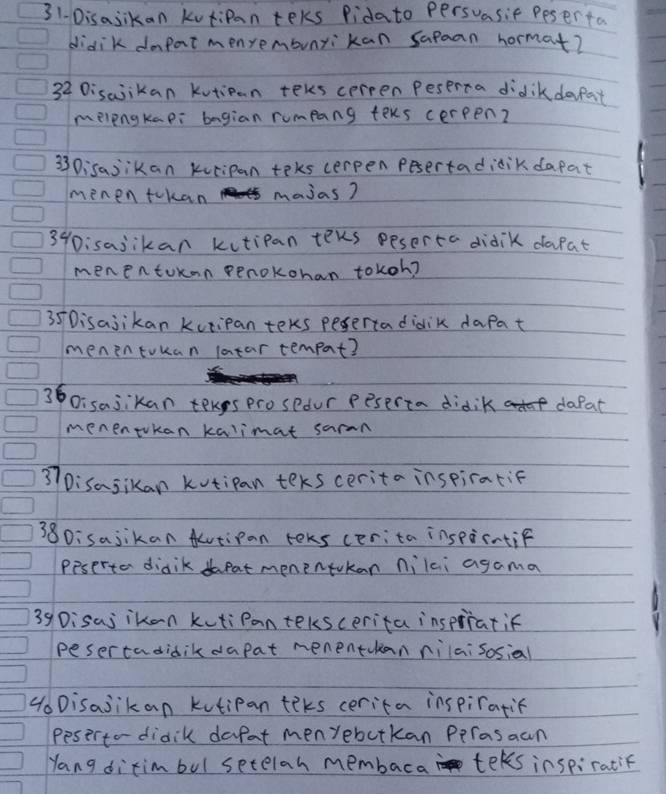 31. Disajikan kutipan teks Pidato Persuasif Peserta
didik dapat menyembunyikan sapaan hormat?
32 Disajikan kutipan teks cerpen Peserta didik dapat
melengkapi bagian rumpang teks cerpen?
33 Disajikan kutipan teks cerpen Peserta didik dapat
menentukan majas?
34 Disajikan kutipan teks peserta didik dapat
menentukan penokohan tokoh?
35 Disajikan kutipan teks peserta didik dapat
menentukan latar tempat?
36 Disajikan teks prosedur peserta didik dapat
menentukan kalimat saran
37 Disajikan kutipan teks cerita inspiratif
38 Disajikan kutipan teks cerita inspiratif
Peserta didik dapat menentukan nilai agama
39 Disajikan kutipan teks cerita inspiratif
peserta didik dapat menentukan nilai sosial
40 Disajikan kutipan teks cerita inspiratif
peserta didik dapat menyebutkan perasaan
Yang ditimbul setelah membaca teks inspiratif